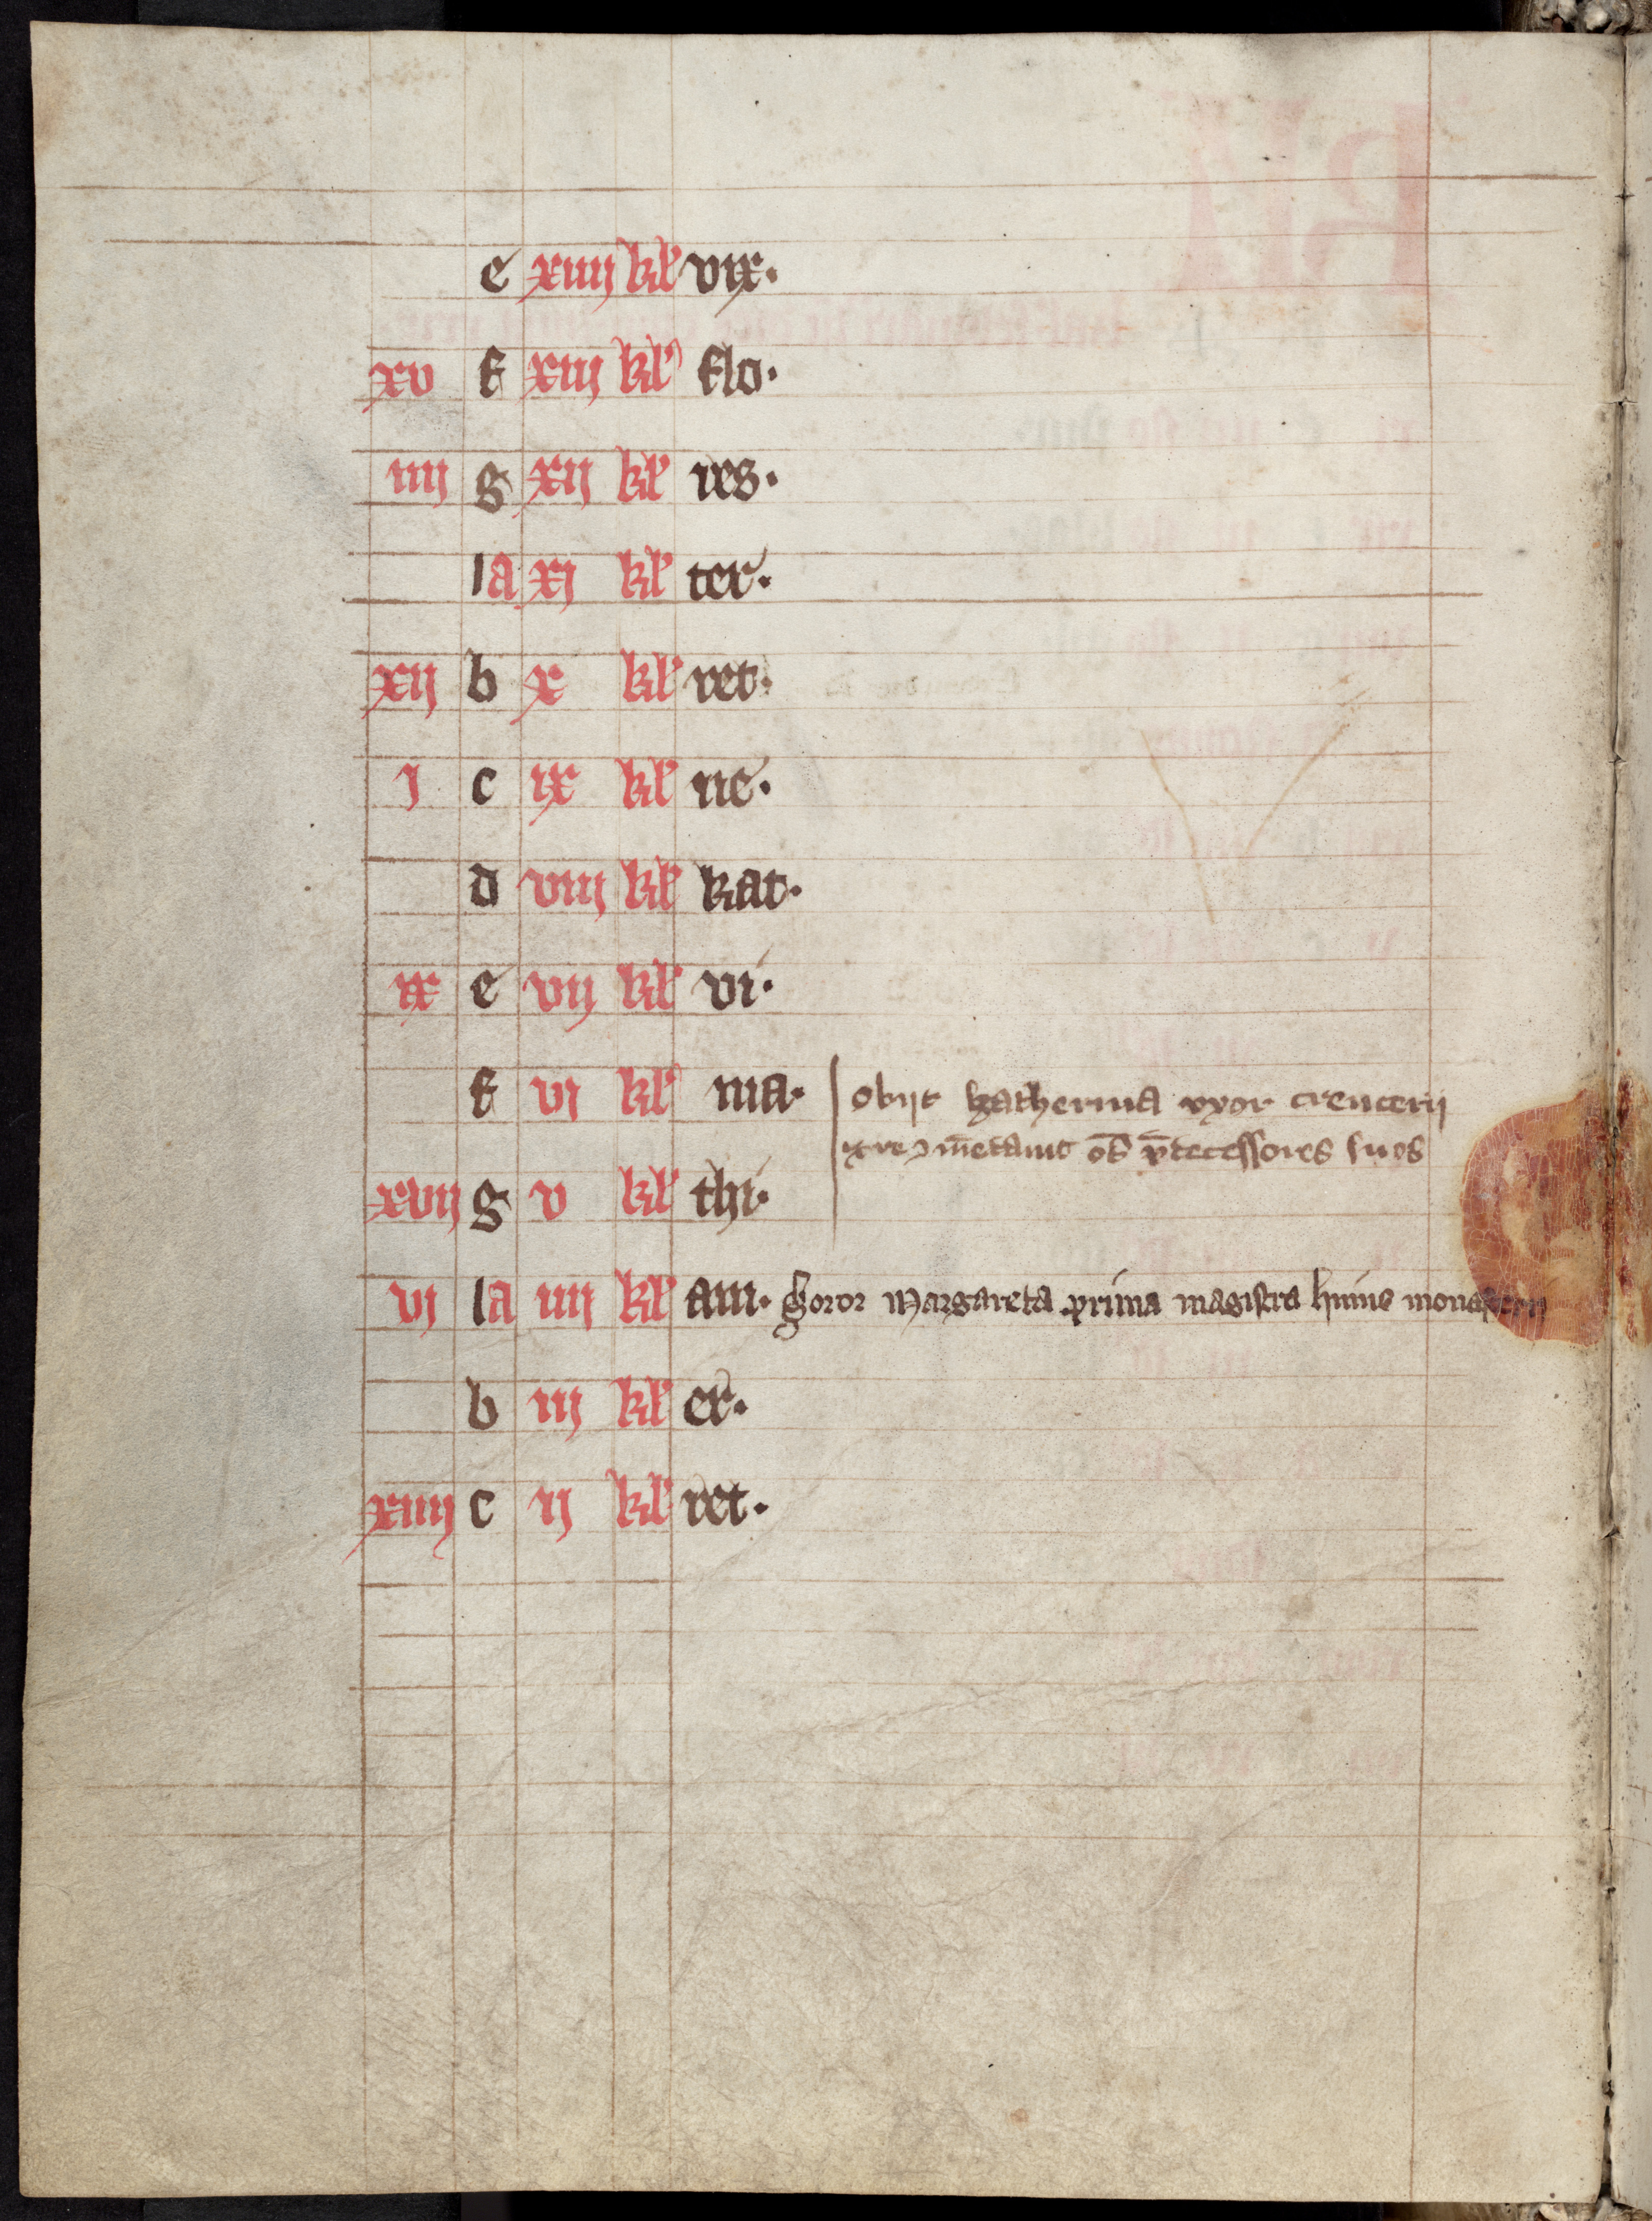 e xiiij kl' vix.
xv f xiij kl' flo.
iiij g xij kl' res.
la xj kl' ter.
xij b x kl' ret.
j c ix kl' ne.
d viij kl' kat.
ix e vij kl' vi.
f vj kl' ma. obijt katherina vxor crencerij
os pdecessores suos
xvij g v kl' thi.
vj la iiij kl' am. Soror Margareta prima magistra huius monasterii
b iij kl' er.
xiiij c ij kl' ret.